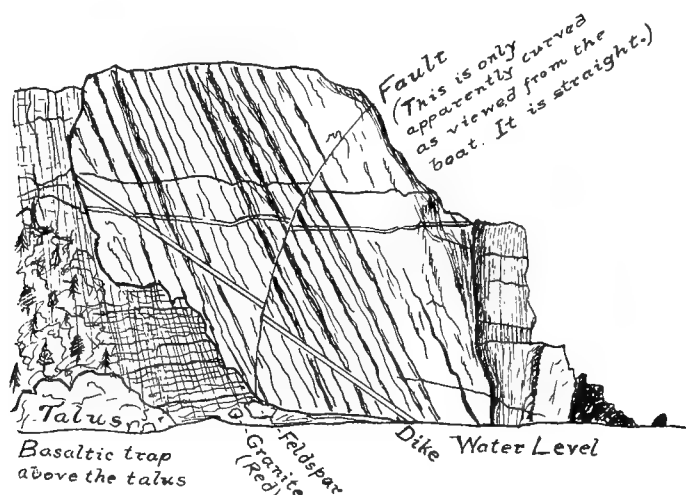 Fault
(This is only
apparently curved
as viewed from the
boat. It is straight.)
Talus
Basaltic trap
above the talus
Granite
(Red)
Feldspar
Dike
Water Level